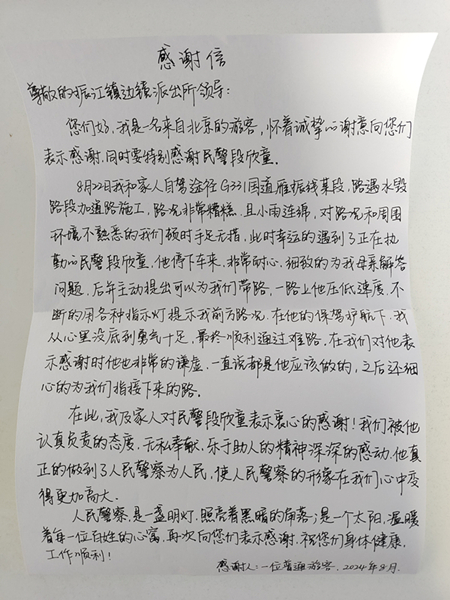 感谢信
尊敬的振江镇边镇派出所领导:
您们好,我是一名来自北京的游客,怀着诚挚心谢意向您们
表示感谢,同时要特别感谢民警段欣童。
8月22日我和家人自驾途径G331国道雁振线某段,路遇水毁
路段加道路施工,路况非常糟糕,且小雨连绵,对路况和周围
环境不熟悉的我们顿时手足无措,此时幸运的遇到了正在执
勤的民警段欣童,他停下车来,非常耐心、细致的为我母亲解答
问题,后并主动提出可以为我们带路,一路上他压低速度,不
断的用各种指示灯提示我前方路况,在他的保驾护航下,我
从心里没底到勇气十足,最终顺利通过难路,在我们对他表
示感谢时他也非常的谦虚,一直说都是他应该做的,之后还细
心的为我们指接下来的路。
在此,我及家人对民警段欣童表示衷心的感谢!我们被他
认真负责的态度,无私奉献,乐于助人的精神深深的感动,他真
正的做到了人民警察为人民,使人民警察的形像在我们心中变
得更加高大。
人民警察,是一盏明灯,照亮着黑暗的角落;是一个太阳,温暖
着每一位百姓的心窝,再次向您们表示感谢,祝您们身体健康,
工作顺利!
感谢人:一位普通游客,2024年8月.